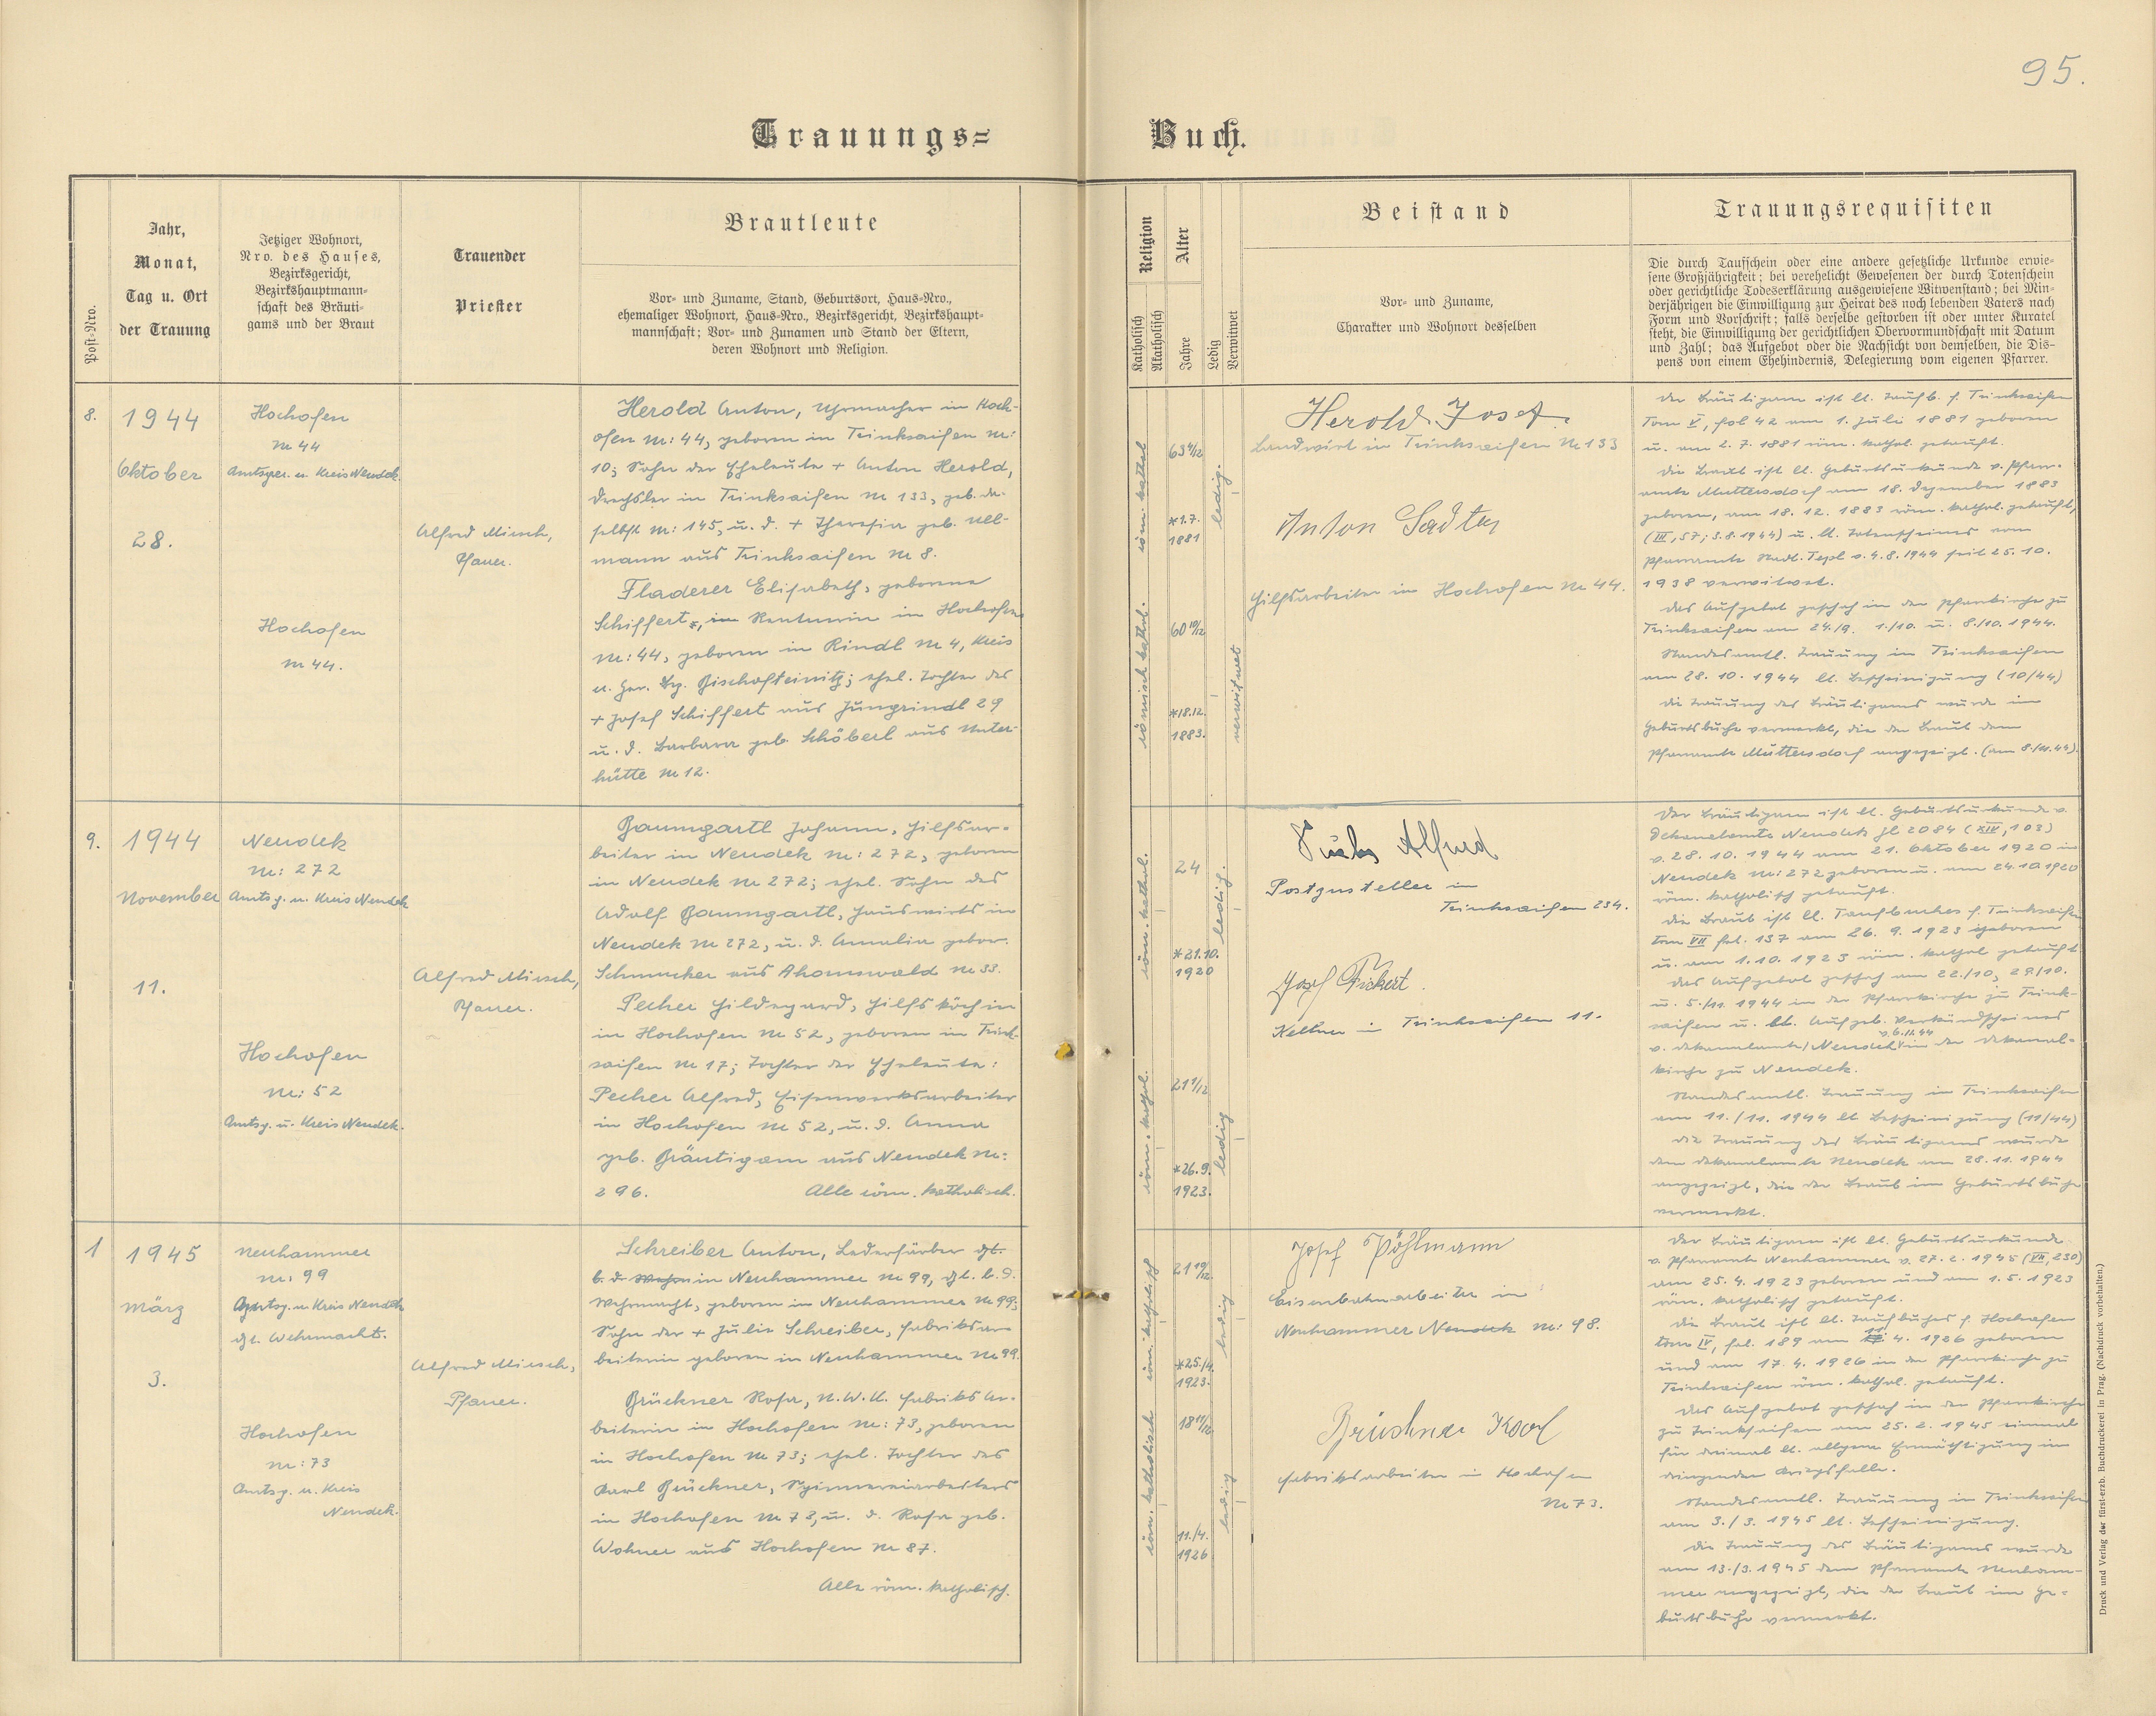 95.
Trauungs=
Buch.
Post-Nro.
Jahr,
Monat,
Tag u. Ort
der Trauung
Jetziger Wohnort,
Nro. des Hauses,
Bezirksgericht,
Bezirkshauptmann-
schaft des Bräuti-
gams und der Braut
Trauender
Priester
Brautleute
Vor- und Zuname, Stand, Geburtsort, Haus-Nro.,
ehemaliger Wohnort, Haus-Nro., Bezirksgericht, Bezirkshaupt-
mannschaft; Vor- und Zunamen und Stand der Eltern,
deren Wohnort und Religion.
Religion
Katholisch
Akatholisch
Alter
Jahre
Ledig
Verwitwet
Beistand
Vor- und Zuname,
Charakter und Wohnort desselben
Trauungsrequisiten
Die durch Taufschein oder eine andere gesetzliche Urkunde erwie-
sene Großjährigkeit; bei verehelicht Gewesenen der durch Totenschein
oder gerichtliche Todeserklärung ausgewiesene Witwenstand; bei Min-
derjährigen die Einwilligung zur Heirat des noch lebenden Vaters nach
Form und Vorschrift; falls derselbe gestorben ist oder unter Kuratel
steht, die Einwilligung der gerichtlichen Obervormundschaft mit Datum
und Zahl; das Aufgebot oder die Nachsicht von demselben, die Dis-
pens von einem Ehehindernis, Delegierung vom eigenen Pfarrer.
8.
1944
Oktober
28.
Hochofen
Nr 44
Amtsger. u. Kreis Neudek.
Hochofen
Nr 44.
Alfred Mirsch,
Pfarrer.
Herold Anton, Uhrmacher in Hoch-
ofen Nr: 44, geboren in Trinksaifen Nr:
10; Sohn der Eheleute + Anton Herold,
Drechsler in Trinksaifen Nr 133, geb. da-
selbst Nr: 145, u. d. + Theresia geb. Ull-
mann aus Trinksaifen Nr 8.
Fladerer Elisabeth, geborene
Schiffert, in Rentnerin in Hochofen
Nr: 44, geboren in Rindl Nr 4, Kreis
u. Ger. Bez. Bischofteinitz; ehel. Tochter des
+ Josef Schiffert aus Jungrindl 29
u. d. Barbara geb. Schöberl aus Unter-
hütte Nr 12.
röm. kathol.
63 4/12
*1.7.
1881
ledig.
römisch kathol.
60 10/12
*18.12.
1883.
verwitwet
Herold Josef.
Landwirt in Trinksaifen Nr 133
Anton Sadter
Hilfsarbeiter in Hochofen Nr 44.
Der Bräutigam ist lt. Taufb. f. Trinksaifen
Tom V, fol 42 am 1. Juli 1881 geboren
u. am 2. 7. 1881 röm. kathol. getauft.
Die Braut ist lt. Geburtsurkunde v. Pfarr-
amte Muttersdorf am 18. Dezember 1883
geboren, am 18. 12. 1883 röm. kathol. getauft,
(III, 57; 3.8.1944) u. lt. Totenscheines vom
Pfarramte Stadt. Tepl v. 4.8.1944 seit 25. 10.
1938 verwitwet.
Das Aufgebot geschah in der Pfarrkirche zu
Trinksaifen am 24./9. 1./10. u. 8./10. 1944.
Standesamtl. Trauung in Trinksaifen
am 28. 10. 1944 lt. Bescheinigung (10/44)
Die Trauung des Bräutigams wurde im
Geburtsbuche vermerkt, die der Braut dem
Pfarramte Muttersdorf angezeigt. (am 8./11.44).
9.
1944
November
11.
Neudek
Nr: 272
Amtsg. u. Kreis Neudek
Hochofen
Nr: 52
Amtsg. u. Kreis Neudek.
Alfred Mirsch,
Pfarrer.
Baumgartl Johann, Hilfsar-
beiter in Neudek Nr: 272, geboren
in Neudek Nr 272; ehel. Sohn des
Adolf Baumgartl, Hauswirts in
Neudek Nr 272, u. d. Amalia gebor.
Schmucker aus Ahornswald Nr 33.
Pecher Hildegard, Hilfsköchin
in Hochofen Nr 52, geboren in Trink-
saifen Nr 17; Tochter der Eheleute:
Pecher Alfred, Eisenwerksarbeiter
in Hochofen Nr 52, u. d. Anna
geb. Bräutigam aus Neudek Nr:
296. Alle röm. katholisch.
röm. kathol.
24
*21.10.
1920
ledig.
röm. kathol.
21 1/12
*26.9.
1923.
ledig
Fuchs Alfred
Postzusteller in
Trinksaifen 234.
Josef Fickert.
Kellner in Trinksaifen 11.
Der Bräutigam ist lt. Geburtsurkunde v.
Dekanalamte Neudek Zl 2084 (XIV, 103)
v. 28. 10. 1944 am 21. Oktober 1920 in
Neudek Nr: 272 geboren u. am 24.10.1920
röm. katholisch getauft.
Die Braut ist lt. Taufbuches f. Trinksaifen
tom VII fol. 137 am 26. 9. 1923 geboren
u. am 1. 10. 1923 röm. kathol getauft
Das Aufgebot geschah am 22./10, 29./10.
u. 5./11. 1944 in der Pfarrkirche zu Trink-
saifen u. lt. Aufgeb. Verkündscheines
v. 6.11.44
v. Dekanalamte Neudek in der Dekanal-
kirche zu Neudek.
Standesamtl. Trauung in Trinksaifen
am 11./11. 1944 lt Bescheinigung (11/44)
Die Trauung des Bräutigams wurde
dem Dekanalamte Neudek am 28. 11. 1944
angezeigt, die der Braut im Geburtsbuche
vermerkt.
1
1945
März
3.
Neuhammer
Nr: 99
Amtsg. u. Kreis Neudek
dzt. Wehrmacht.
Hochofen
Nr: 73
Amtsg. u. Kreis
Neudek.
Alfred Mirsch,
Pfarrer.
Schreiber Anton, Lederfärber dzt.
b. d. Wehrm in Neuhammer Nr 99, dzt. b. d.
Wehrmacht, geboren in Neuhammer Nr 99;
Sohn der + Julie Schreiber, Fabriksar-
beiterin geboren in Neuhammer Nr 99.
Brückner Rosa, N.W.K. Fabriks Ar-
beiterin in Hochofen Nr: 73, geboren
in Hochofen Nr 73; ehel. Tochter des
Karl Brückner, Spinnereiarbeiters
in Hochofen Nr 73, u. d. Rosa geb.
Wohner aus Hochofen Nr 87.
Alle röm. katholisch.
röm. katholisch
21 10/12
*25./4.
1923.
ledig
röm. katholisch
18 11/12
11./4.
1926
ledig
Josef Pöhlmann
Eisenbahnarbeiter in
Neuhammer Neudek Nr: 98.
Brückner Karl
Fabriksarbeiter in Hochofen
Nr 73.
Der Bräutigam ist lt. Geburtsurkunde
v. Pfarramte Neuhammer v. 27. 2. 1945 (VII, 230)
am 25. 4. 1923 geboren und am 1. 5. 1923
röm. katholisch getauft.
Die Braut ist lt. Taufbuches f. Hochofen
tom IV, fol. 189 am 11. 4. 1926 geboren
und am 17. 4. 1926 in der Pfarrkirche zu
Trinksaifen röm. kathol. getauft.
Das Aufgebot geschah in der Pfarrkirche
zu Trinksaifen am 25. 2. 1945 einmal
für dreimal lt. allgem Ermächtigung im
dringenden Kriegsfalle.
Standesamtl. Trauung in Trinksaifen
am 3./3. 1945 lt. Bescheinigung.
Die Trauung des Bräutigams wurde
am 13./3. 1945 dem Pfarramte Neuham-
mer angezeigt, die der Braut im Ge-
burtsbuche vermerkt.
Druck und Verlag der fürst-erzb. Buchdruckerei in Prag. (Nachdruck vorbehalten.)